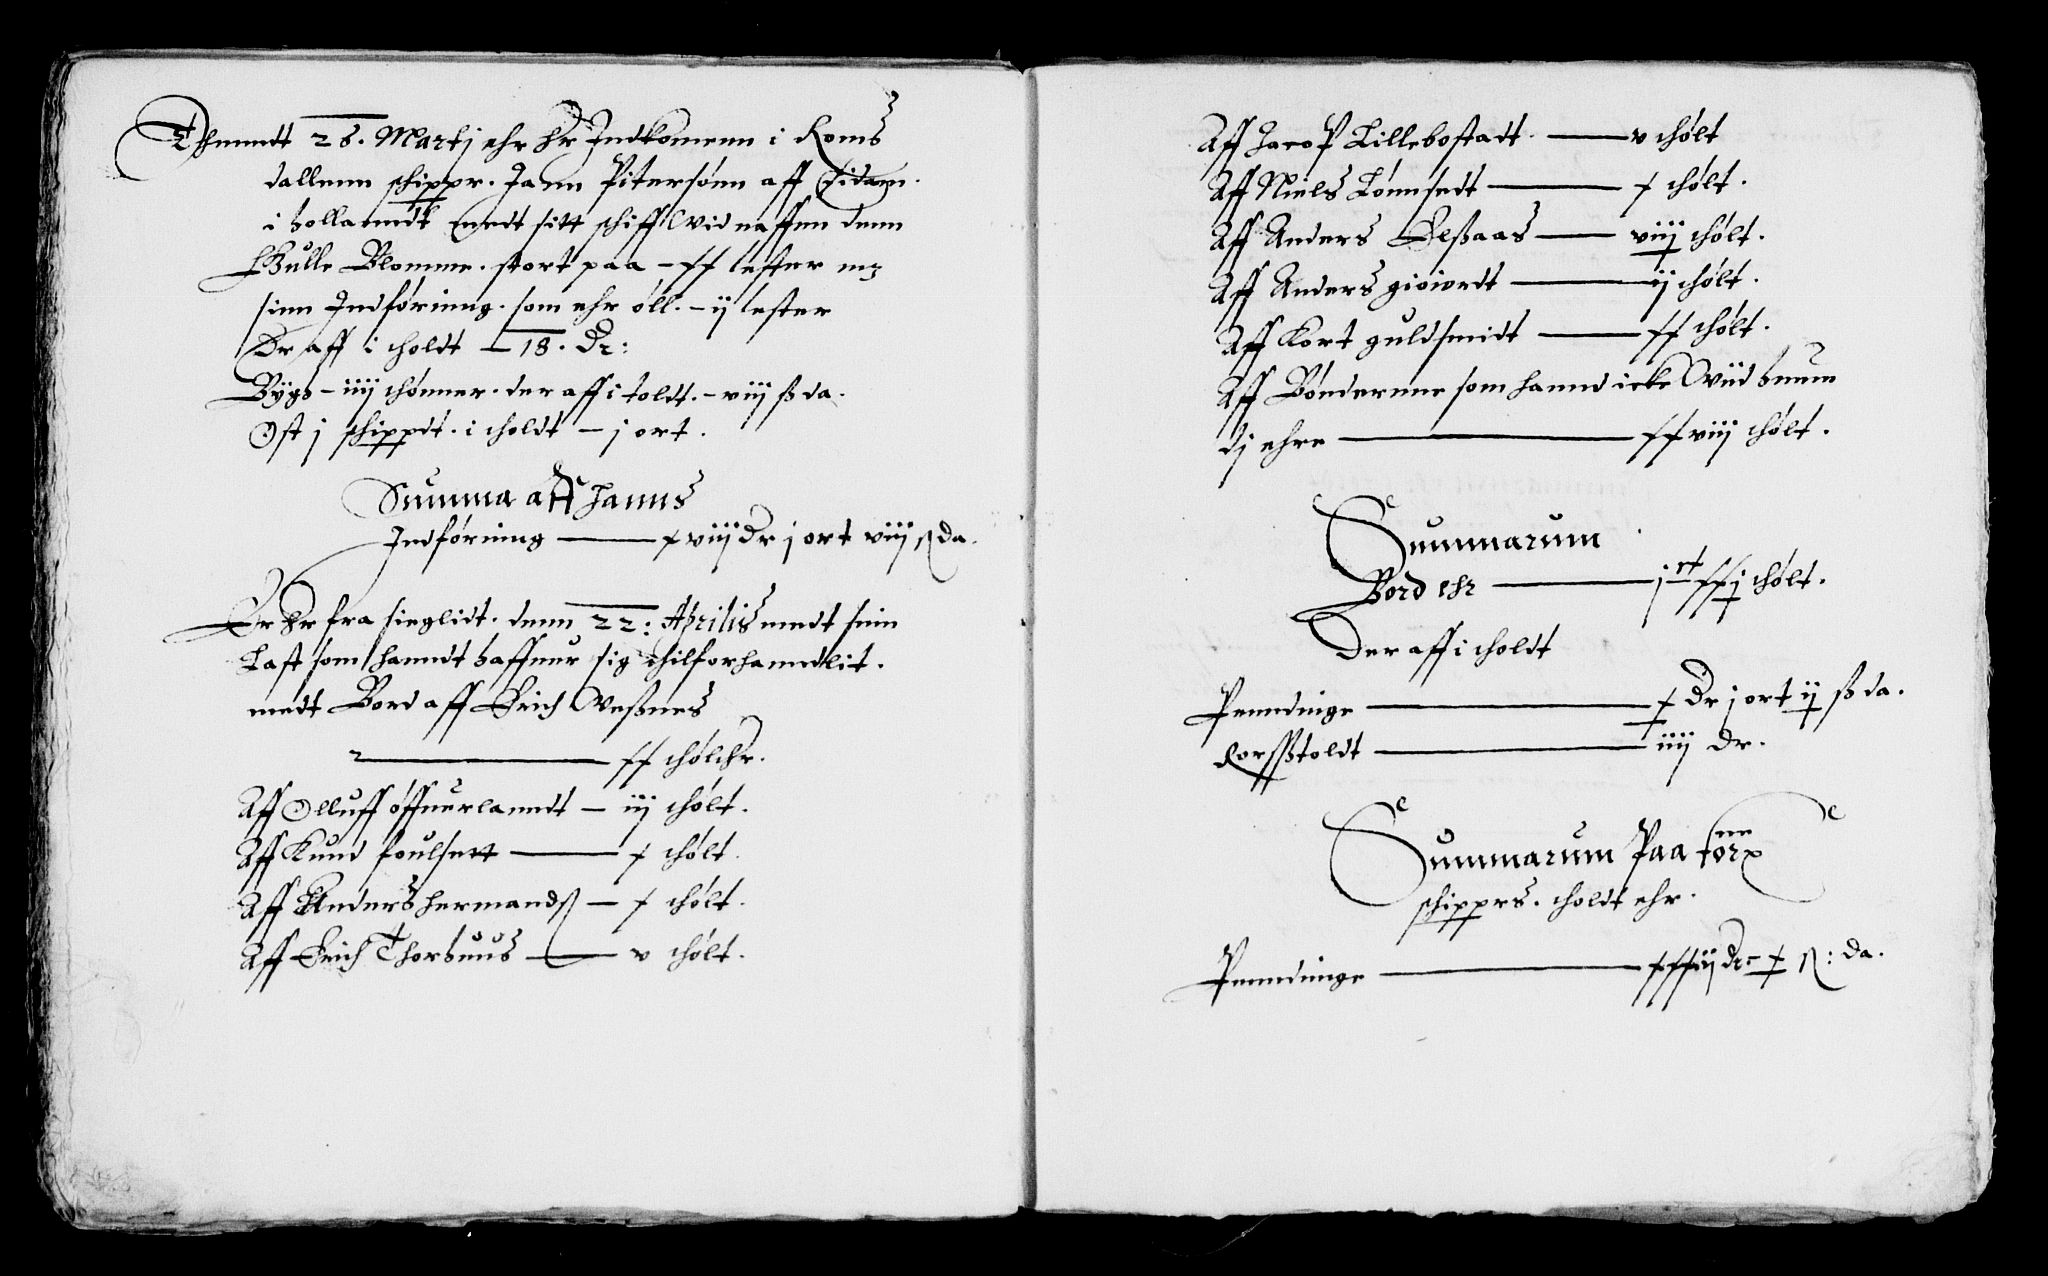 Thenndt 28. Martj ehr hr Indkomenn i Roms
dallenn schippr. Jann Pitersønn aff Eidam.
i hollanndt medt sitt schiff Wid naffnn denn
Gulle Blomme. stort paa – xx lester mz
sinn Indføring. som ehr øll. – ij lester
Dr aff i choldt – 18. Dr:
Bygh – iiij thønner. der aff i toldt. – viij ß da.
Ost j schippdt. i choldt – j ort.
Summa aff hanns
Indføring — x viij Dr j ort viij ß da.
Er hr fra sieglidt. denn 22: Aprilis medt sinn
Last som hanndt haffuer sig thilforhanndlit.
medt Bord aff Erich Weßnes
— xx chølthr.
Aff Olluff øffuerlanndt – iij chølt.
Aff Knud Poulsett — x chølt.
Aff Anders hermandß – x chølt.
Aff Erich Thorhuus — v chølt.
Aff Jacop Lillebostadt. — v chølt
Aff Niels Lønnsedt — x chølt.
Aff Anders Elßaas — viij chølt.
Aff Anders giøiordt — ij chølt.
Aff Kort guldsmidt — xx chølt.
Aff Bønderne som hannd icke Wiid huem
dj ehre — xx viij chølt.
Summarum
Bord ehr — j xx j chølt.
Der aff i choldt
Penndinge — x Dr j ort ij ß da.
Korßtoldt — iiij Dr.
Summarum Paa
schipprs. choldt ehr.
Penndinge — xxxij Dr – x ß: da.